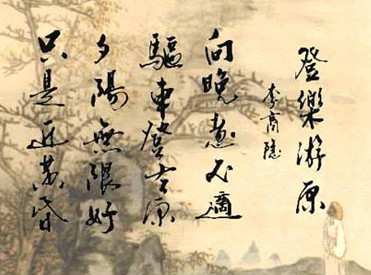 登樂游原
李商隐
向晚意不適
驅車登古原
夕陽無限好
只是近黄昏